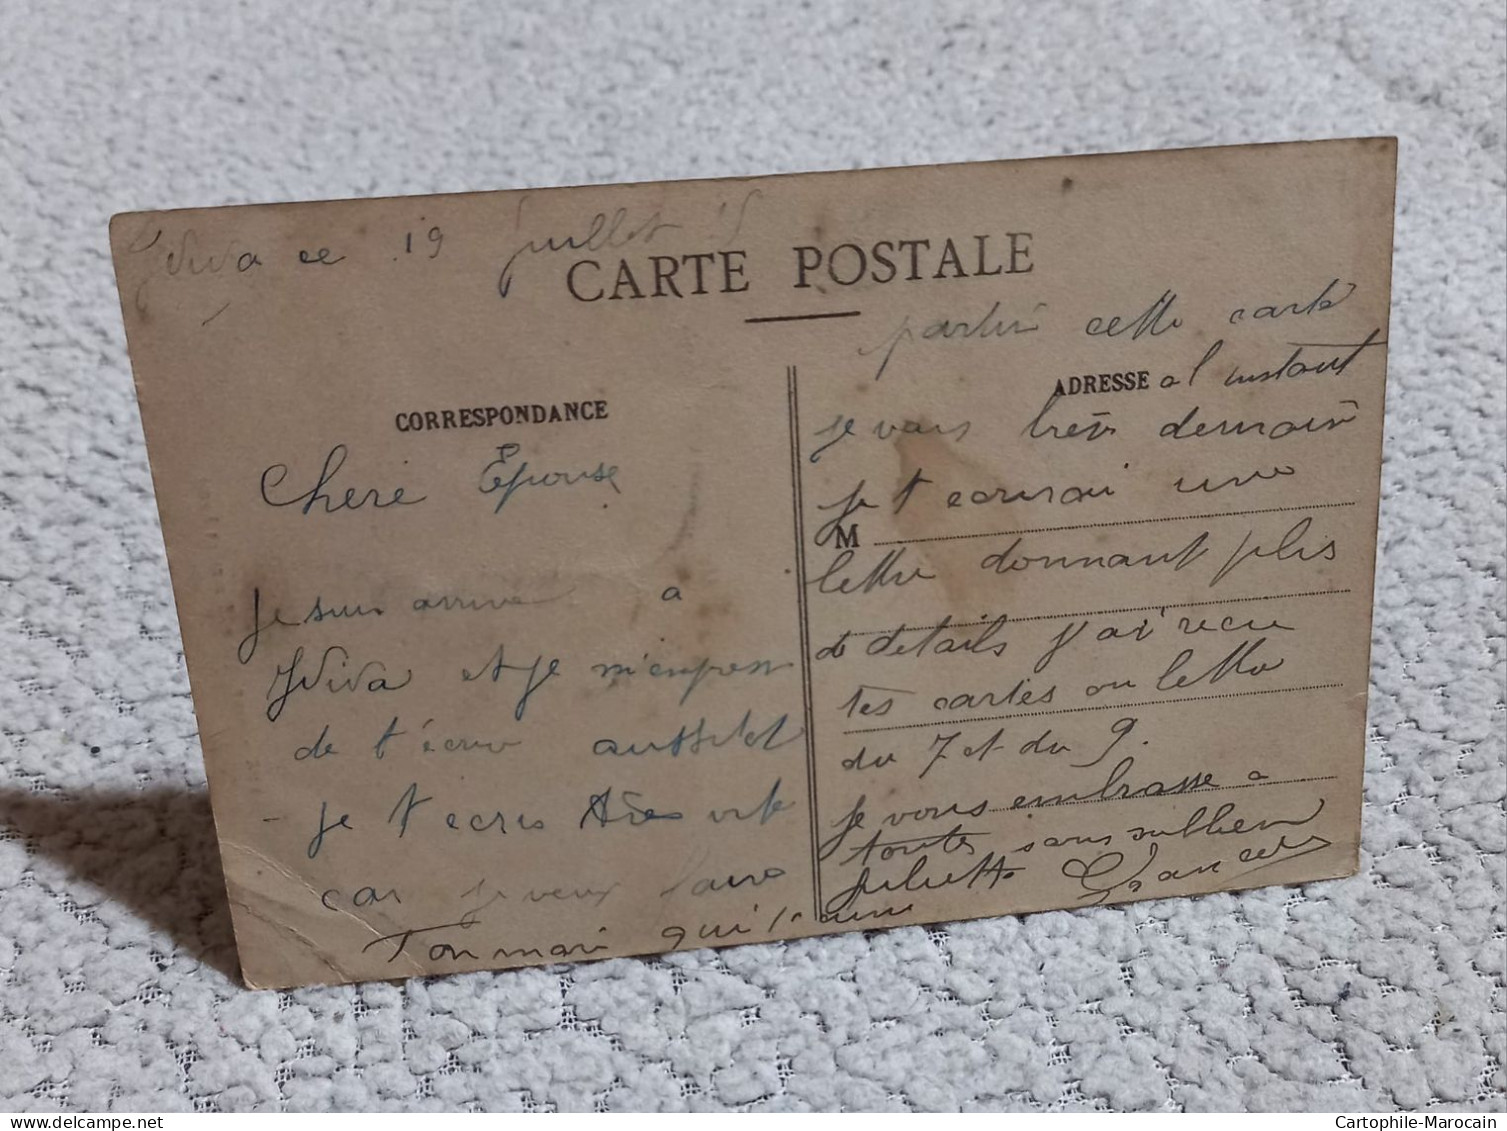 ce 19 juillet 15
CARTE POSTALE
CORRESPONDANCE
Chere Epouse
Je suis arrivé a
et je m'empress
de t'écrire aussitot
- je t'ecris très vite
car je veux faire
partir cette carte
ADRESSE a l instant
je vais bien demain
je t ecrirai une
M
lettre donnant plus
de details j'ai recu
tes cartes ou lettre
du 7 et du 9.
je vous embrasse a
toutes sans oublier
Juliette
Ton mari qui t'aime
Cartophile-Marocain